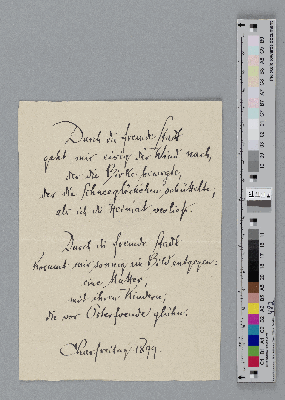 Durch die fremde Stadt
geht mir ewig der Wind nach,
der die Birke bewegte,
der die Schneeglöckchen schüttelte,
als ich die Heimat verließ.
Durch die fremde Stadt
kommt mir sonnig ein Bild entgegen:
eine Mutter,
mit ihren Kindern,
die vor Osterfreude glühn.
Charfreitag 1899.